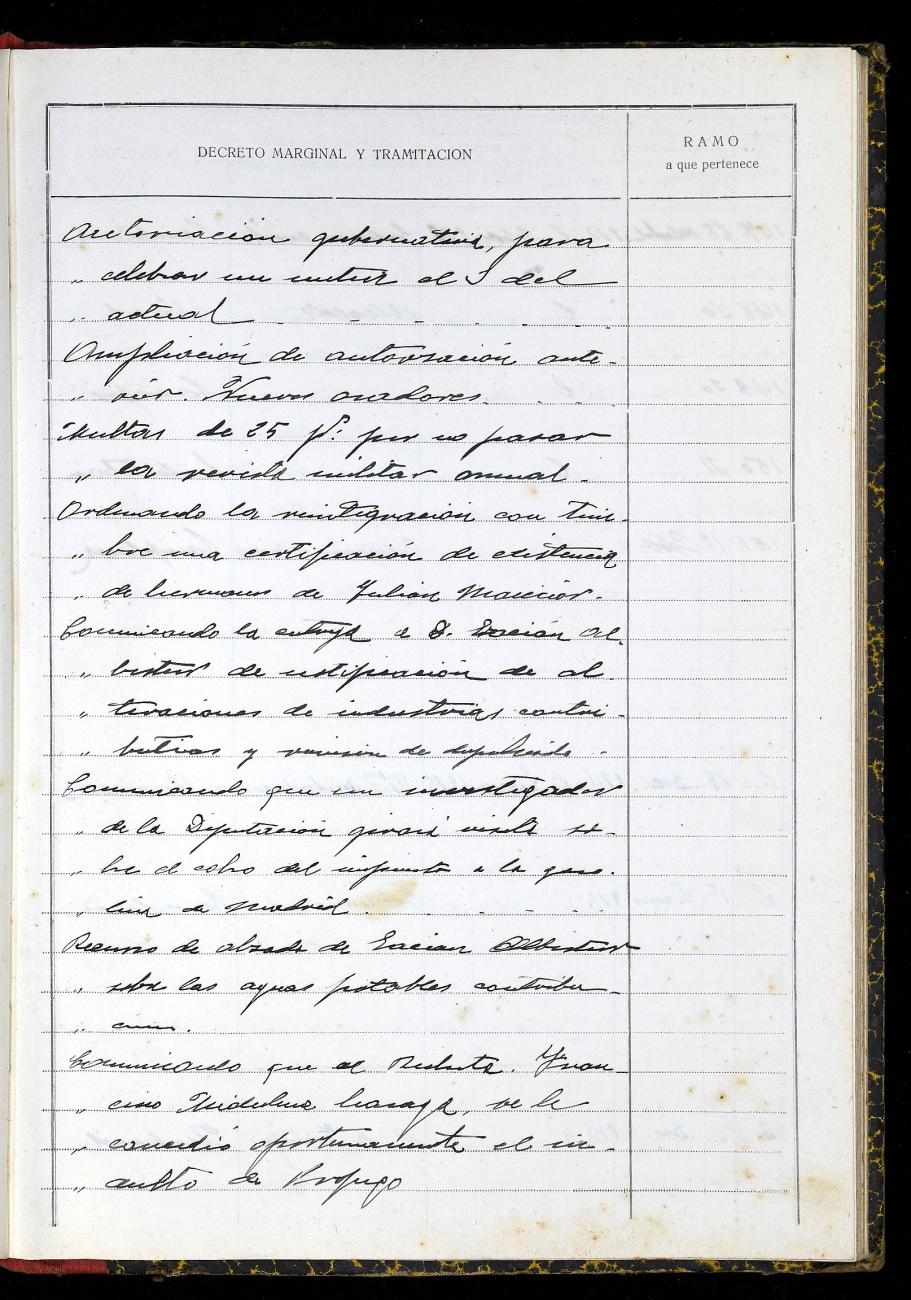 DECRETO MARGINAL Y TRAMITACION
RAMO
a que pertenece
Autoriacion gubernativa, para
„ celebrar un mitin el 5 del
„ actual
Ampliación de autorización ante-
„ rior. Nuevos oradores.
Multas de 25 p.s por no pasar
„ la revista militar anual.
Ordenando la reintegración con tim-
„ bre una certificación de existencia
„ de hermanos de Julian
Comunicando la entrega a D. Al-
„ de certificación de al
„ teraciones de industrias contri-
„ butivas y de
Comunicando que un investigador
„ de la Diputación girará visita so-
„ bre el cobro del impuesto a la gaso-
„ lina de Madrid
Recurso de alzada de
„ sobre las aguas potables contribu-
„ cion.
Comunicando que al Recluta. Fran-
„ cisco , se le
„ concedió oportunamente el in-
„ dulto de Profugo